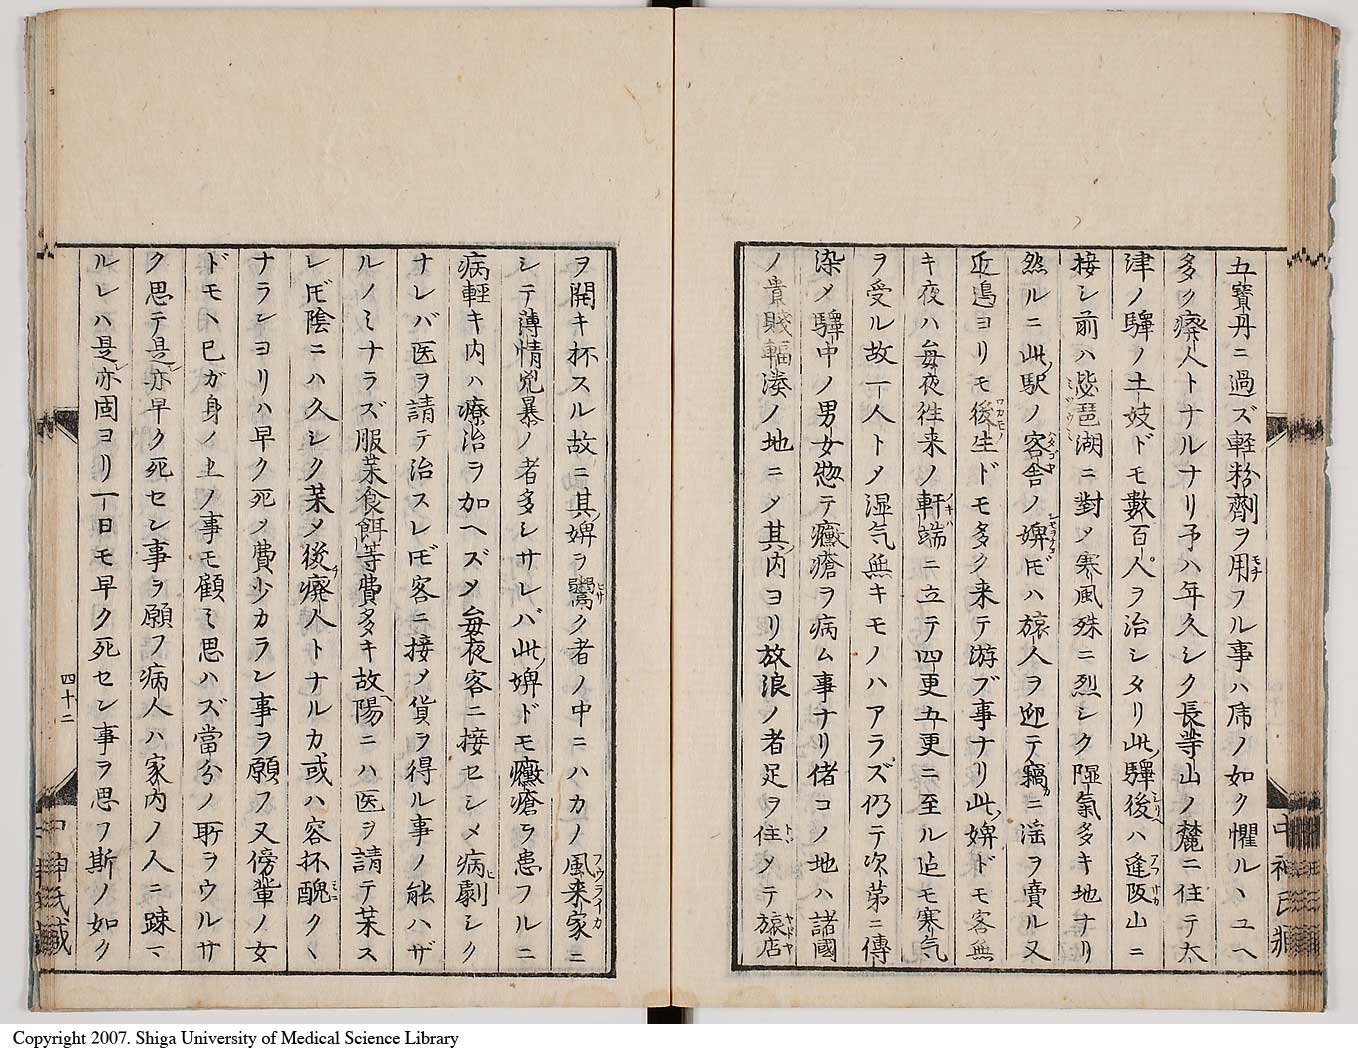 五寳丹ニ過ズ軽粉劑ヲ用フル事ハ乕ノ如ク懼ルヽユヘ
多ク癈人トナルナリ予ハ年久シク長等山ノ麓ニ住テ大
津ノ驛ノ土妓ドモ數百人ヲ治シタリ此驛後ハ逢阪山ニ
接シ前ハ琵琶湖ニ對メ寒風殊ニ烈シク隰氣多キ地ナリ
然ルニ此駅ノ客舎ノ婢𪜈ハ旅人ヲ迎テ竊ニ淫ヲ賣ル又
近邊ヨリモ後生ドモ多ク来テ游ブ事ナリ此婢ドモ客無
キ夜ハ毎夜往来ノ軒端ニ立テ四更五更ニ至ル迠モ寒気
ヲ受ル故一人トメ湿気無キモノハアラズ仍テ次第ニ傳
染メ驛中ノ男女惣テ黴瘡ヲ病ム事ナリ偖コノ地ハ諸國
ノ貴賤輻湊ノ地ニメ其内ヨリ放浪ノ者足ヲ住メテ旅店
ヲ開キ抔スル故ニ其婢ヲ鬻ク者ノ中ニハカノ風来家ニ
シテ薄情兇暴ノ者多シサレバ此婢ドモ黴瘡ヲ患フルニ
病輕キ内ハ療治ヲ加ヘズメ毎夜客ニ接セシメ病劇シク
ナレバ医ヲ請テ治スレ𪜈客ニ接メ貨ヲ得ル事ノ能ハザ
ルノミナラズ服菜食餌等費多キ故陽ニハ医ヲ請テ菜ス
レ𪜈陰ニハ久シク菜メ後癈人トナルカ或ハ容抔醜クヽ
ナランヨリハ早ク死メ費少カラン事ヲ願フ又傍輩ノ女
ドモヽ已ガ身ノ上ノ事モ顧ミ思ハズ當分ノ所ヲウルサ
ク思テ是亦早ク死セン事ヲ願フ病人ハ家内ノ人ニ疎マ
ルレハ是亦固ヨリ一日モ早ク死セン事ヲ思フ斯ノ如ク
四十二
中神氏藏
Copyright 2007. Shiga University of Medical Science Library